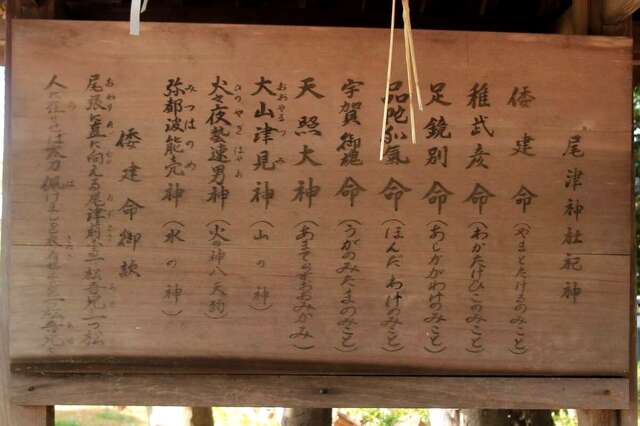 尾津神社祀神
倭建命(やまとたけるのみこと)
稚武彦命(わかたけひこのみこと)
足鏡別命(あしかがわけのみこと)
品陀和氣命(ほんだわけのみこと)
宇賀御魂命(うがのみたまのみこと)
天照大神(あまてらすおおみかみ)
大山津見神(山の神)
おおやまつみ
火之夜藝速男神(火の神八天狗)
ひのやぎはやお
弥都波能売神(水の神)
みつはのめ
倭建命御歌
尾張に直に向える尾津前なる一松吾兄一つ松
人に在りせば太刀佩けましを衣着せましを一つ松吾兄を